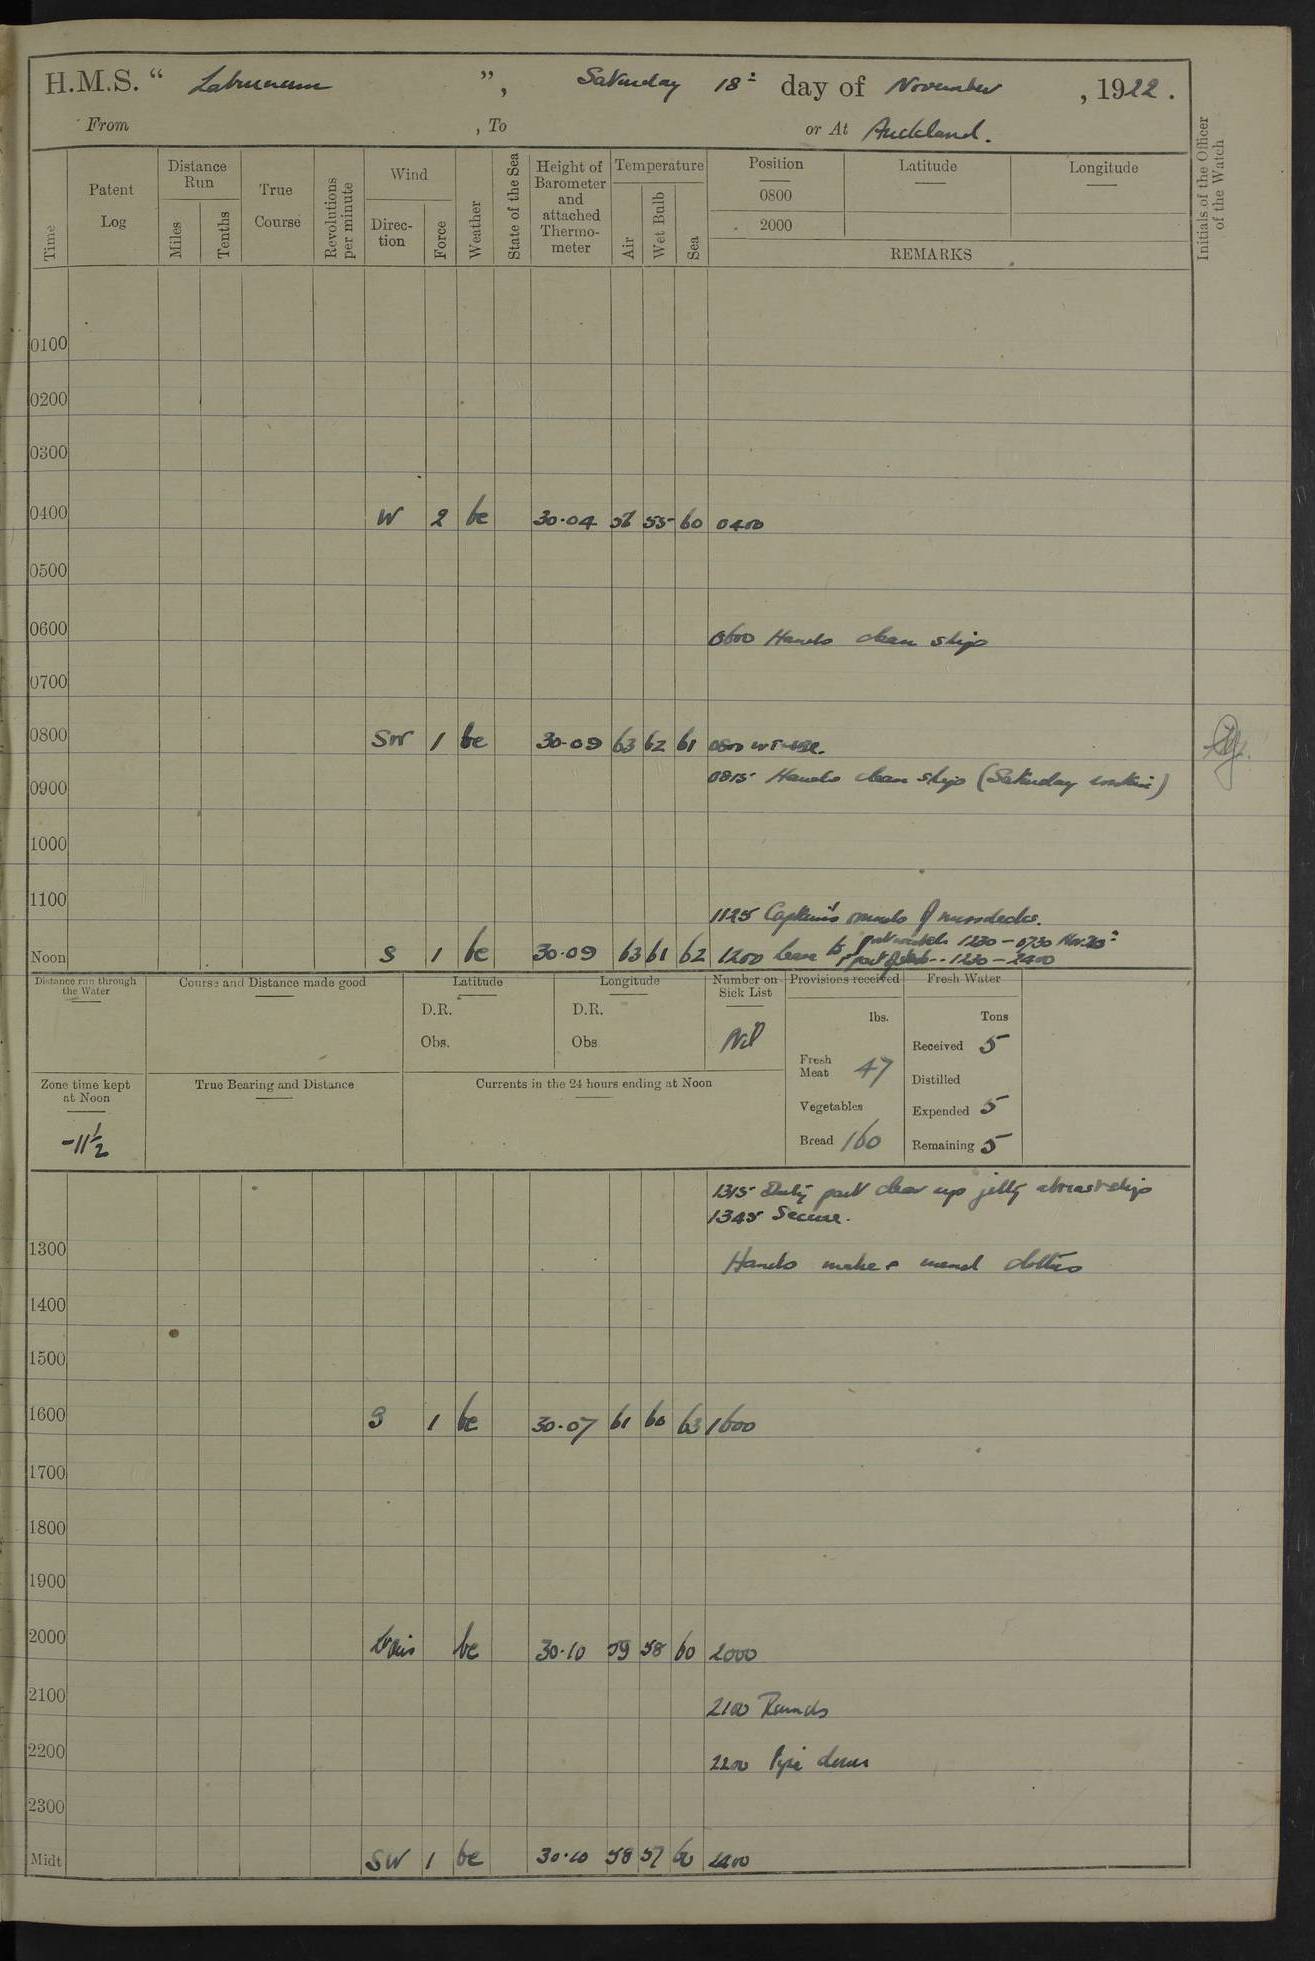 H.M.S. “ Laburnum ”, Saturday 18th day of November , 1922.
From , To or At Auckland.
Time
Patent Log
Distance Run
Miles
Tenths
True Course
Revolutions per minute
Wind
Direction
Force
Weather
State of the Sea
Height of Barometer and attached Thermometer
Temperature
Air
Wet Bulb
Sea
Position
Latitude
Longitude
0800
2000
REMARKS
Initials of the Officer of the Watch
0100
0200
0300
0400 W 2 bc 30·04 55 60 0400
0500
0600 0600 Hands clean ship
0700
0800 SW 1 bc 30·09 63 62 61 0800
0815 Hands clean ship (Saturday routine)
0900
1000
1100
1125 Captain's rounds of messdecks.
Noon S 1 bc 30·09 63 61 62 1200 leave to part watch 1230 – 0730 Nov. 20th
part of 1230 – 2400
Distance run through the Water
Course and Distance made good
Latitude
D.R.
Obs.
Longitude
D.R.
Obs
Number on Sick List
Nil
Provisions received
lbs.
Fresh Meat 47
Vegetables
Bread 160
Fresh Water
Tons
Received 5
Distilled
Expended 5
Remaining 5
Zone time kept at Noon
-11½
True Bearing and Distance
Currents in the 24 hours ending at Noon
1315 Duty part clear up jetty abreast ship
1345 Secure.
1300 Hands make & mend clothes
1400
1500
1600 S 1 bc 30·07 61 60 63 1600
1700
1800
1900
2000 bc 30·10 59 58 60 2000
2100 2100 Rounds
2200 2200 Pipe down
2300
Midt SW 1 bc 30·10 58 57 60 2400